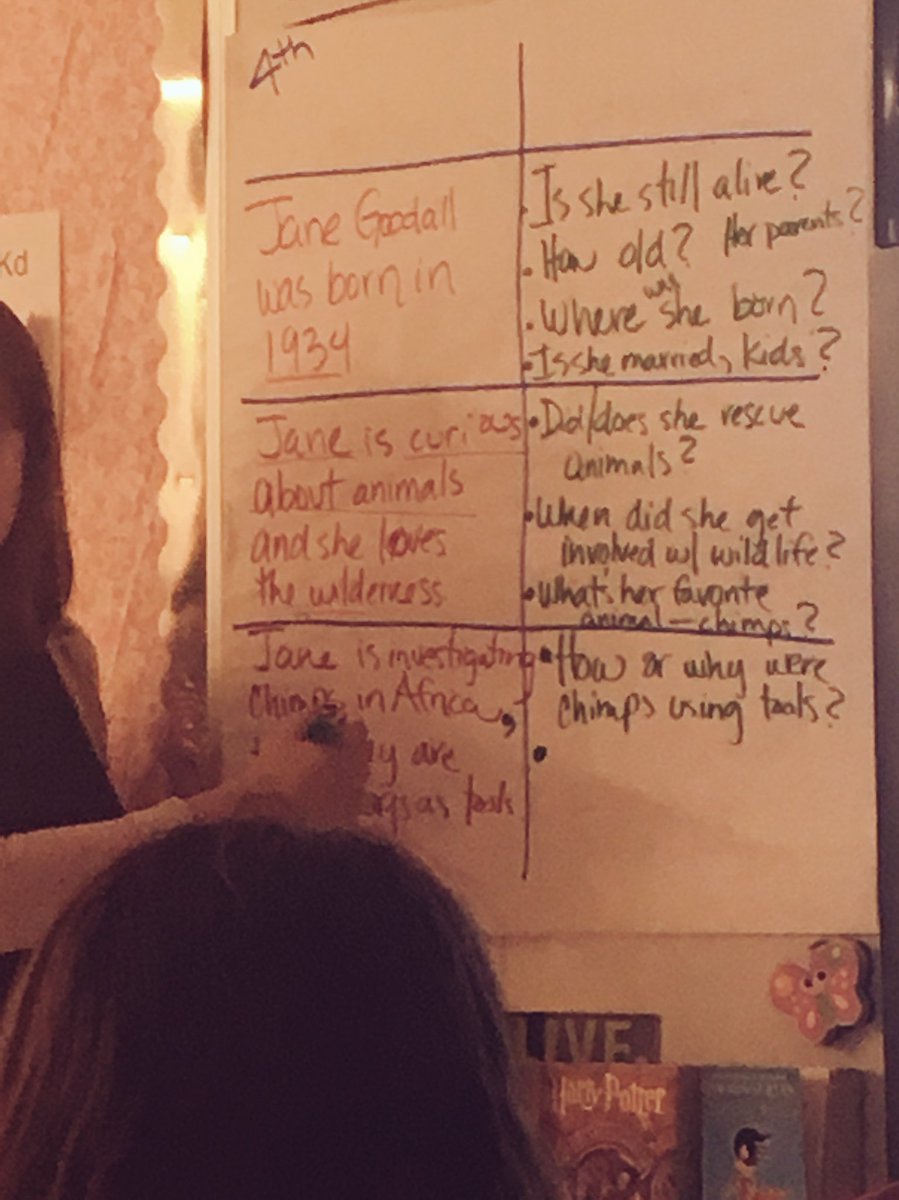 4th
Jane Goodall
was born in
1934
Is she still alive?
• How old? Her parents?
• Where was she born?
• Is she married, kids?
Jane is curious
about animals
and she loves
the wilderness
• Did/does she rescue
animals?
• When did she get
involved w/ wildlife?
• What's her favorite
animal - chimps?
Jane is investigating
chimps in Africa,
are
as tools
• How or why were
chimps using tools?
•
Kd
LIVE.
Harry Potter